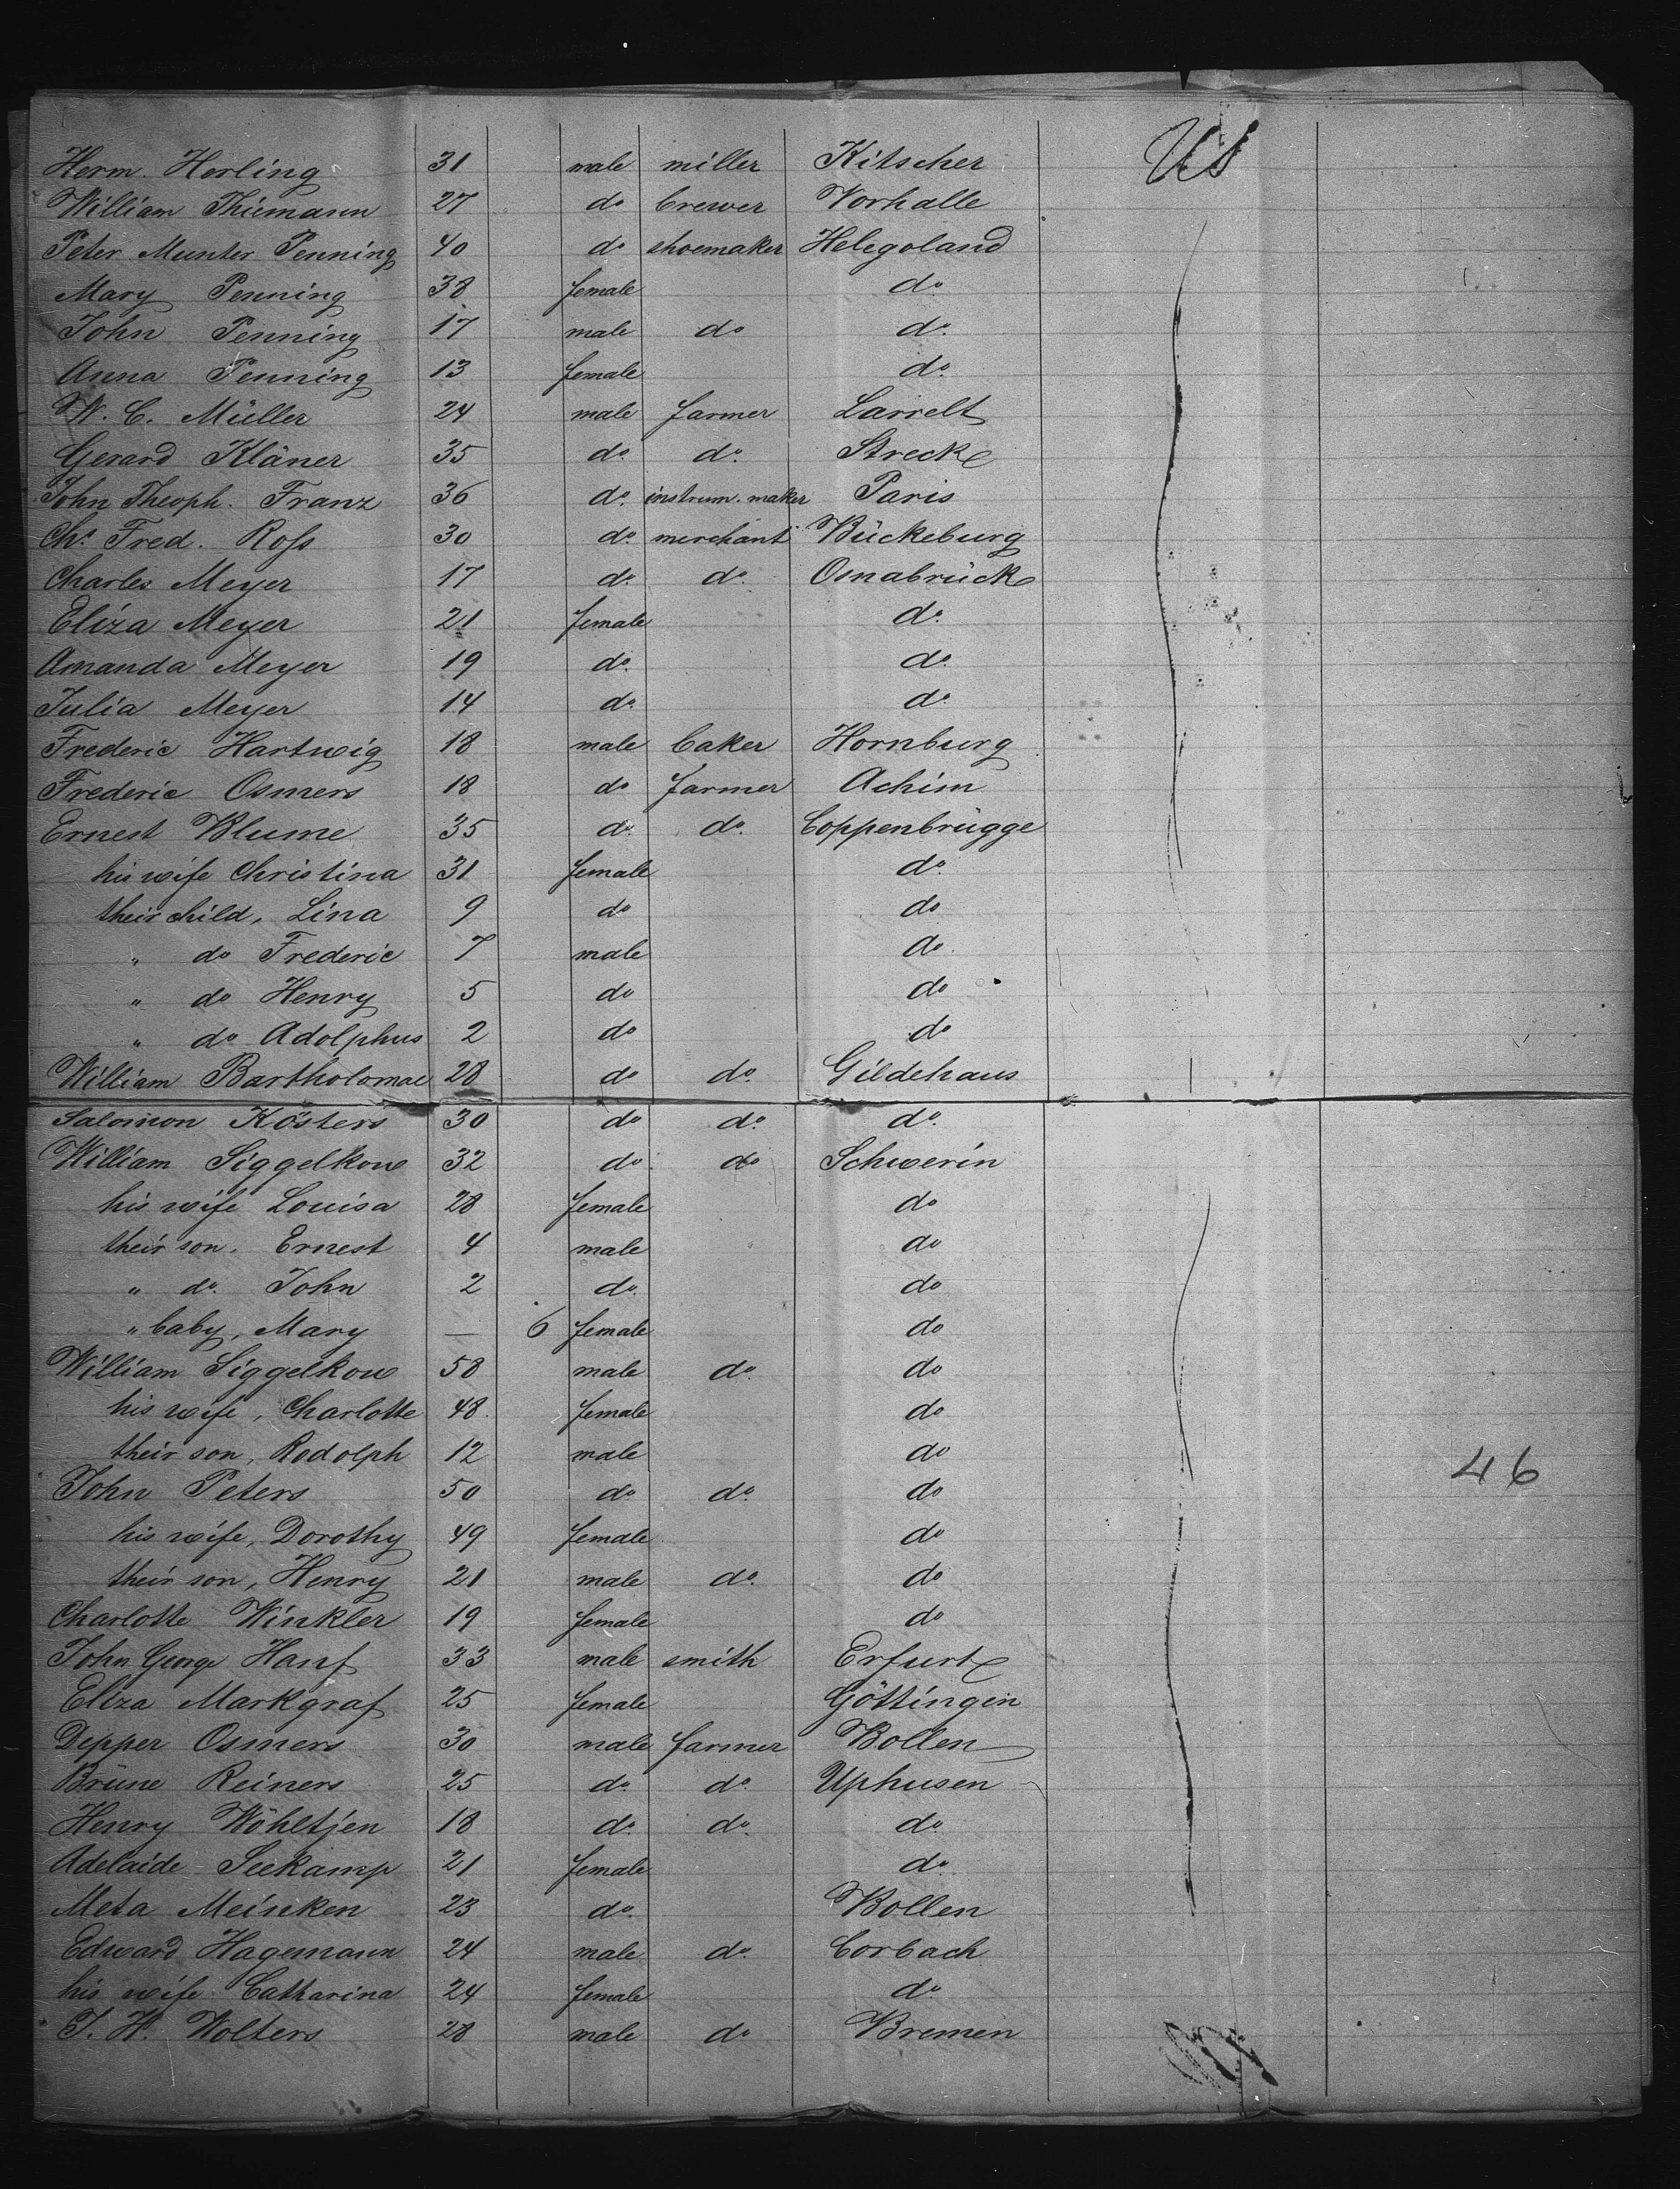 Herm. Horling 31 male miller Kitscher US
William Thiemann 27 do brewer Vorhalle
Peter Munter Penning 40 do shoemaker Helegoland
Mary Penning 38 female do
John Penning 17 male do do
Anna Penning 13 female do
W. C. Müller 24 male farmer Larrelt
Gerard Kläner 35 do do Streek
John Theoph. Franz 36 do instrum. maker Paris
Chs. Fred. Ross 30 do merchant Bückeburg
Charles Meyer 17 do do Osnabrück
Eliza Meyer 21 female do
Amanda Meyer 19 do do
Julia Meyer 14 do do
Frederic Hartwig 18 male baker Hornburg
Frederic Osmers 18 do farmer Achim
Ernest Blume 35 do do Coppenbrügge
his wife Christina 31 female do
their child, Lina 9 do do
" do Frederic 7 male do
" do Henry 5 do do
" do Adolphus 2 do do
William Bartholomae 28 do do Gildehaus
Salomon Kösters 30 do do do
William Siggelkow 32 do do Schwerin
his wife Louisa 28 female do
their son. Ernest 4 male do
" do. John 2 do do
" baby, Mary — 6 female do
William Siggelkow 58 male do do
his wife, Charlotte 48 female do
their son, Rodolph 12 male do
John Peters 50 do do do 46
his wife, Dorothy 49 female do
their son, Henry 21 male do do
Charlotte Winkler 19 female do
John George Hanf 33 male smith Erfurt
Eliza Markgraf 25 female Göttingen
Depper Osmers 30 male farmer Bollen
Brüne Reiners 25 do do Uphusen
Henry Wöhltjen 18 do do do
Adelaide Seekamp 21 female do
Meta Meinken 23 do Bollen
Edward Hagemann 24 male do Corbach
his wife Catharina 24 female do
J. H. Wolters 28 male do Bremen